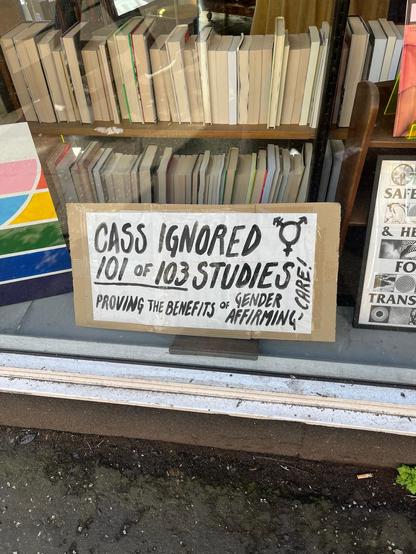 CASS IGNORED
101 OF 103 STUDIES
PROVING THE BENEFITS OF GENDER
AFFIRMING CARE!
SAFE
& HE
FO
TRANS